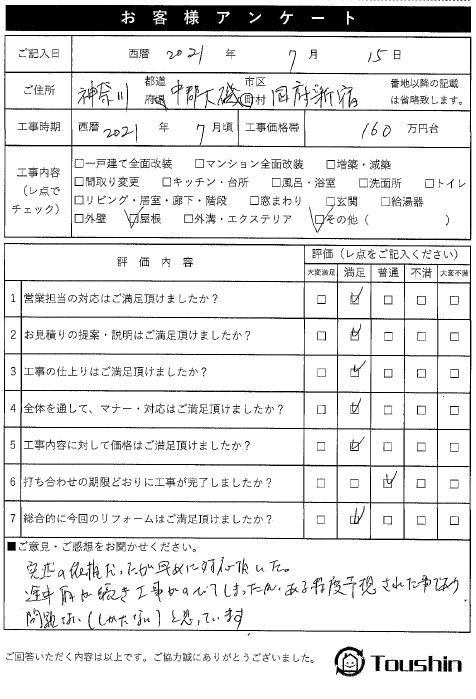 お客様アンケート
ご記入日 西暦 2021 年 7 月 15 日
ご住所 神奈川 都道府県 中郡大磯 市区町村 国府新宿 番地以降の記載は省略致します。
工事時期 西暦 2021 年 7 月頃 工事価格帯 160 万円台
工事内容（レ点でチェック）
□一戸建て全面改装 □マンション全面改装 □増築・減築
□間取り変更 □キッチン・台所 □風呂・浴室 □洗面所 □トイレ
□リビング・居室・廊下・階段 □窓まわり □玄関 □給湯器
□外壁 ☑屋根 □外溝・エクステリア ☑その他（ ）
評価内容 評価（レ点をご記入ください）
大変満足 満足 普通 不満 大変不満
1 営業担当の対応はご満足頂けましたか？ □ ☑ □ □ □
2 お見積りの提案・説明はご満足頂けましたか？ □ ☑ □ □ □
3 工事の仕上りはご満足頂けましたか？ □ ☑ □ □ □
4 全体を通して、マナー・対応はご満足頂けましたか？ □ ☑ □ □ □
5 工事内容に対して価格はご満足頂けましたか？ □ ☑ □ □ □
6 打ち合わせの期限どおりに工事が完了しましたか？ □ □ ☑ □ □
7 総合的に今回のリフォームはご満足頂けましたか？ □ ☑ □ □ □
■ご意見・ご感想をお聞かせください。
突然の依頼だったが早めに対応頂いた。
途中雨が続き工事がのびてしまったが、ある程度予想された事であり
問題ない（しかたない）と思っています
ご回答いただく内容は以上です。ご協力誠にありがとうございました。
Toushin